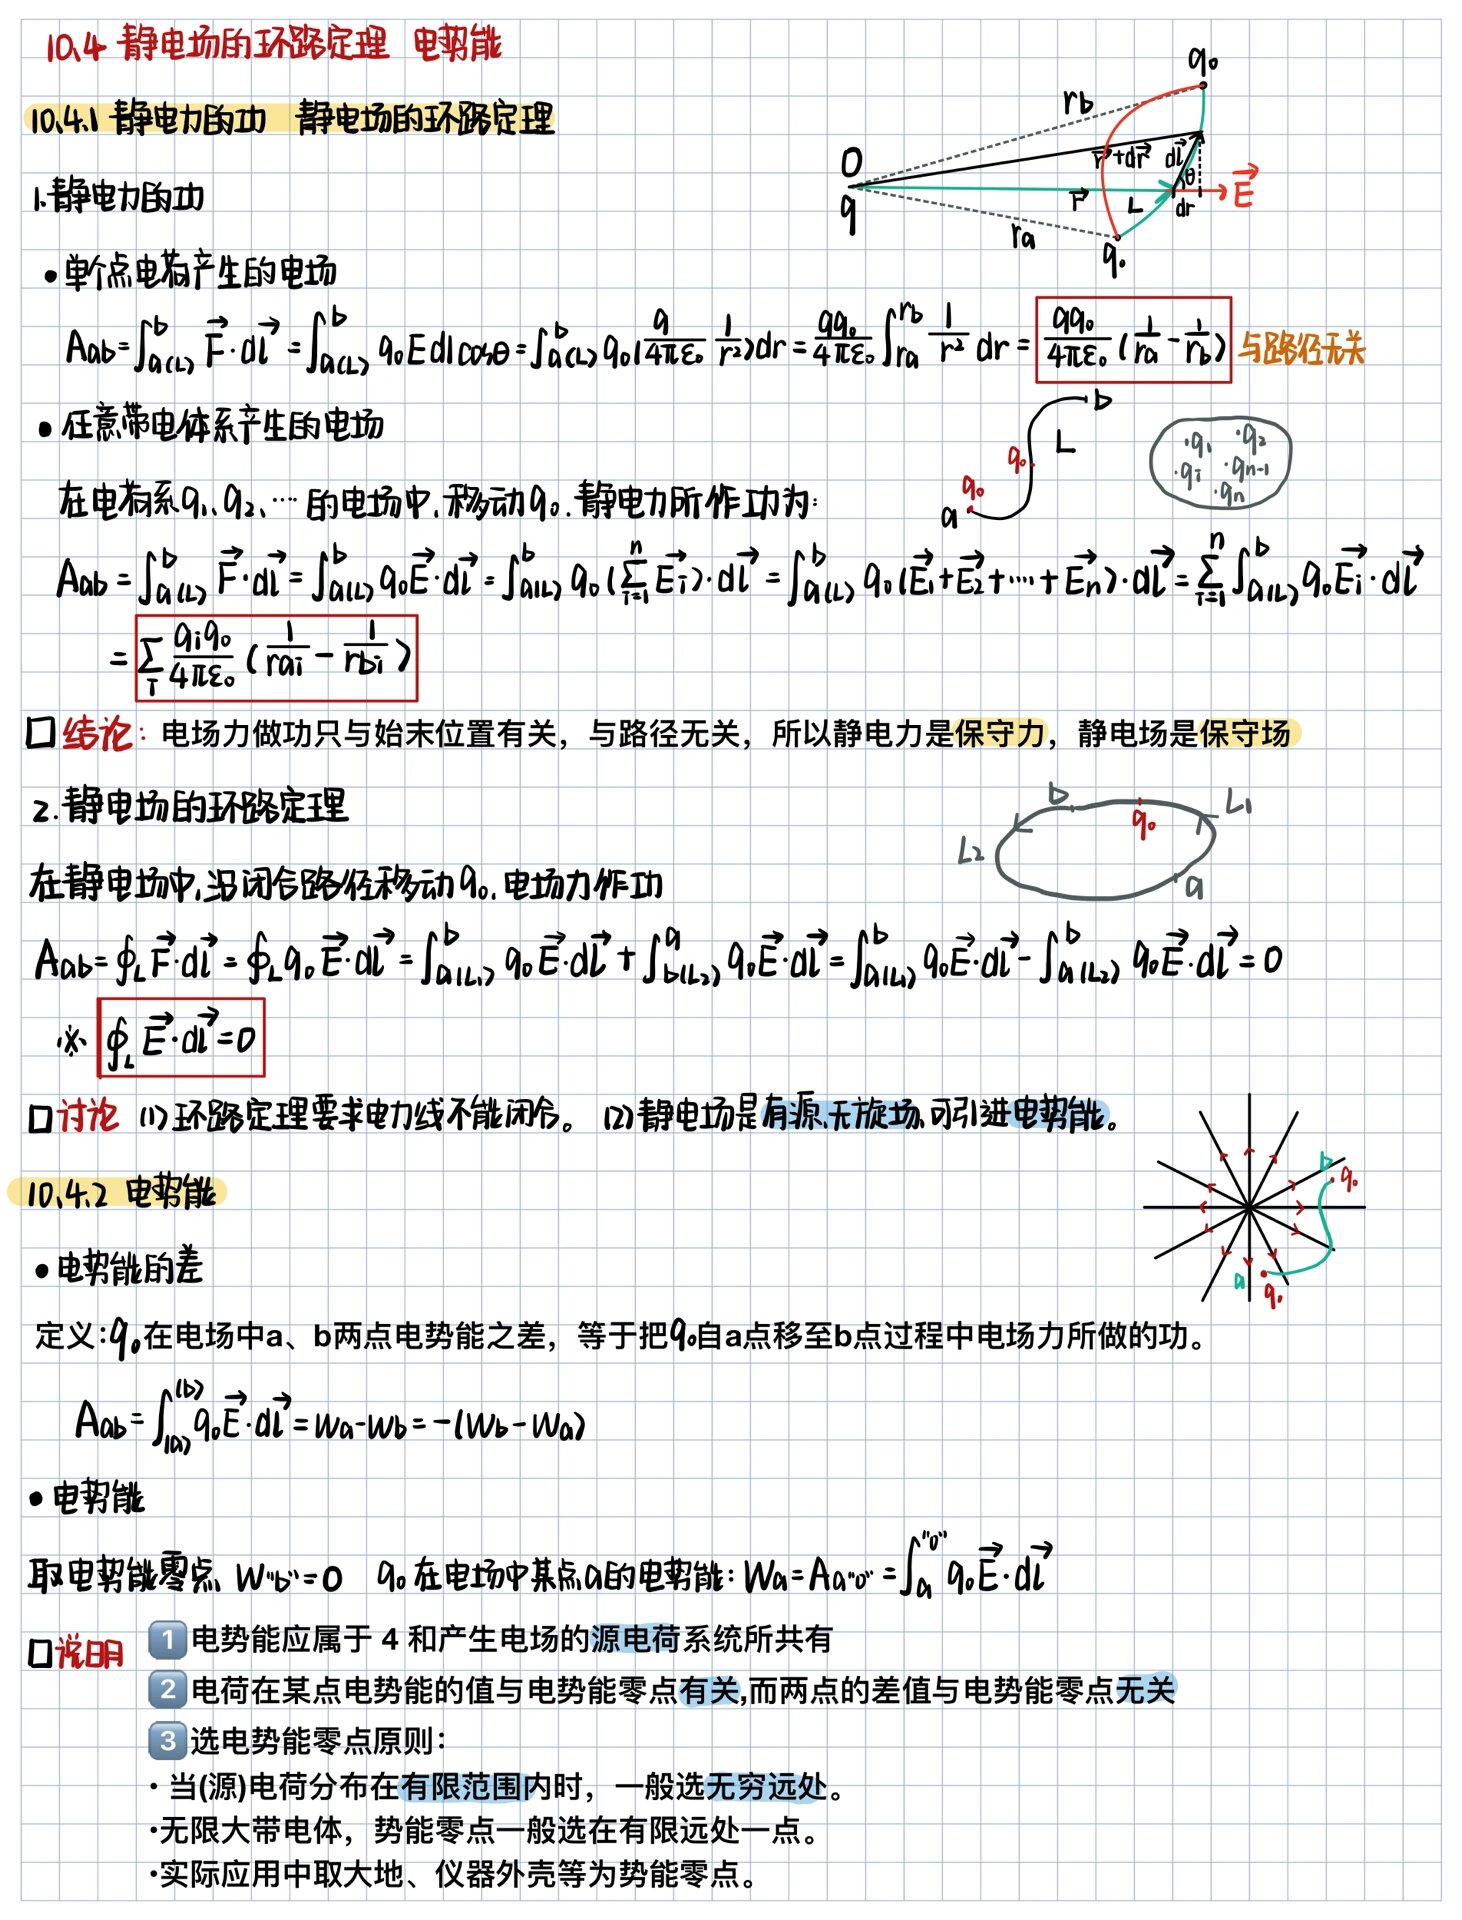 10.4 静电场的环路定理 电势能
10.4.1 静电力的功 静电场的环路定理
q₀
rb
r⃗+dr⃗ dl⃗
O θ E⃗
q r⃗ L dr
ra
q₀
1.静电力的功
•单个点电荷产生的电场
Aab=∫a(L)^b F⃗·dl⃗ =∫a(L)^b q₀Edlcosθ=∫a(L)^b q₀(q/4πε₀ 1/r²)dr=qq₀/4πε₀ ∫ra^rb 1/r² dr=qq₀/4πε₀(1/ra-1/rb) 与路径无关
•任意带电体系产生的电场
b
L
q₀
q₀
a
·q₁ ·q₂
·qi ·qn-1
·qn
在电荷系q₁、q₂、…的电场中,移动q₀.静电力所作功为:
Aab=∫a(L)^b F⃗·dl⃗=∫a(L)^b q₀E⃗·dl⃗=∫a(L)^b q₀(∑i=1^n E⃗i)·dl⃗=∫a(L)^b q₀(E⃗1+E⃗2+…+E⃗n)·dl⃗=∑i=1^n∫a(L)^b q₀E⃗i·dl⃗
=∑i qiq₀/4πε₀(1/rai-1/rbi)
□结论:电场力做功只与始末位置有关，与路径无关，所以静电力是保守力，静电场是保守场
2.静电场的环路定理
b q₀ L₁
L₂
a
在静电场中,沿闭合路径移动q₀.电场力作功
Aab=∮L F⃗·dl⃗=∮L q₀E⃗·dl⃗=∫a(L₁)^b q₀E⃗·dl⃗+∫b(L₂)^a q₀E⃗·dl⃗=∫a(L₁)^b q₀E⃗·dl⃗-∫a(L₂)^b q₀E⃗·dl⃗=0
※ ∮L E⃗·dl⃗=0
□讨论 (1)环路定理要求电力线不能闭合。 (2)静电场是有源、无旋场,可引进电势能。
b
q₀
a
q₀
10.4.2 电势能
•电势能的差
定义:q₀在电场中a、b两点电势能之差，等于把q₀自a点移至b点过程中电场力所做的功。
Aab=∫(a)^(b) q₀E⃗·dl⃗=Wa-Wb=-(Wb-Wa)
•电势能
取电势能零点 W"b"=0 q₀在电场中某点a的电势能:Wa=Aa"0"=∫a^"0" q₀E⃗·dl⃗
□说明 1 电势能应属于 4 和产生电场的源电荷系统所共有
2 电荷在某点电势能的值与电势能零点有关,而两点的差值与电势能零点无关
3 选电势能零点原则：
·当(源)电荷分布在有限范围内时，一般选无穷远处。
·无限大带电体，势能零点一般选在有限远处一点。
·实际应用中取大地、仪器外壳等为势能零点。